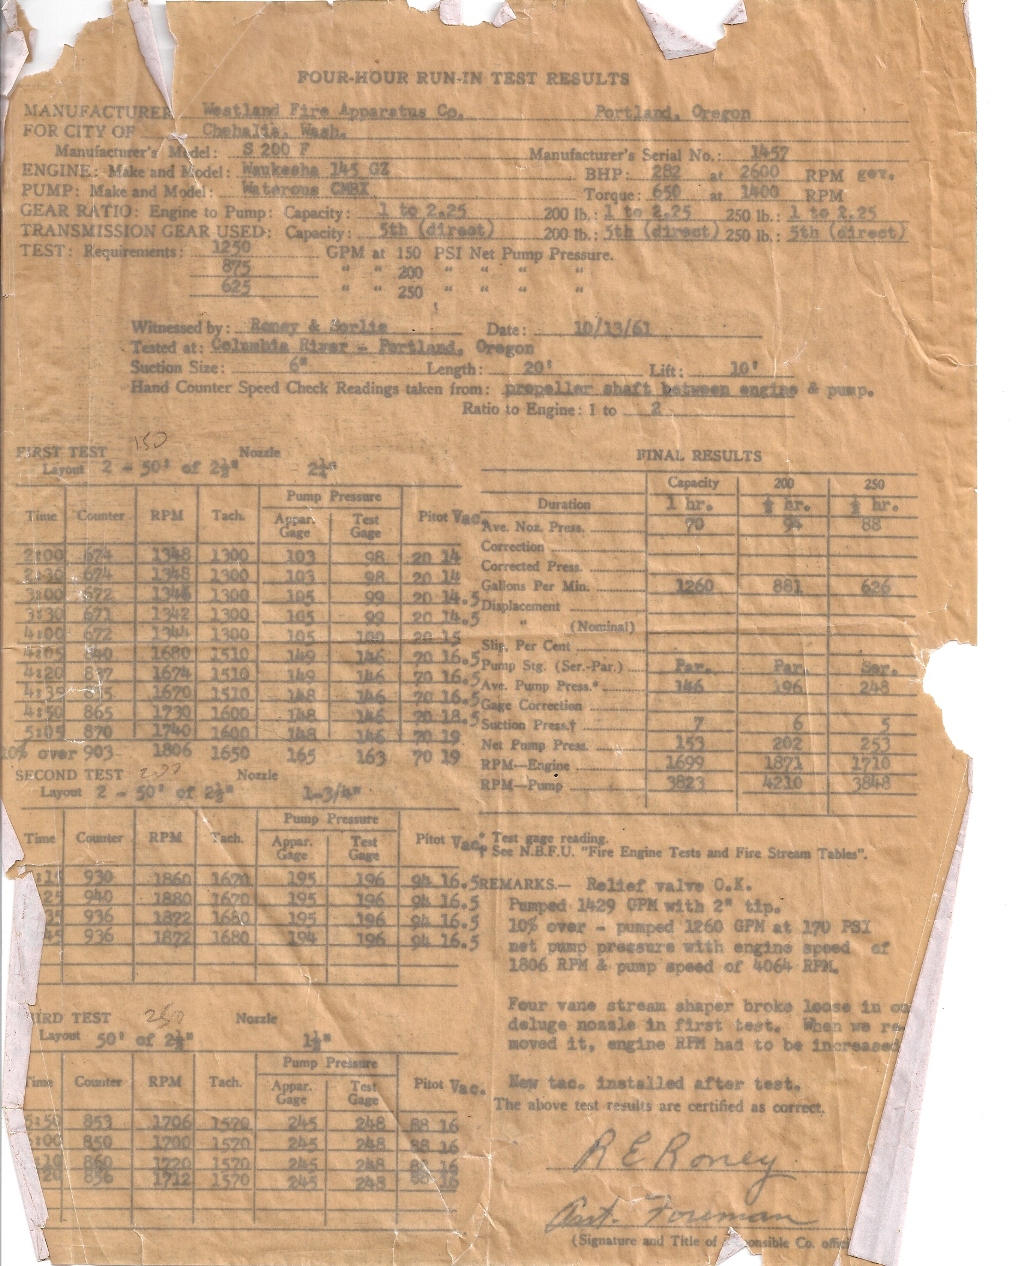 FOUR-HOUR RUN-IN TEST RESULTS
MANUFACTURER Westland Fire Apparatus Co. Portland, Oregon
FOR CITY OF Chehalis, Wash.
Manufacturer's Model: S 200 F Manufacturer's Serial No.: 1457
ENGINE: Make and Model: Waukesha 145 GZ BHP: 282 at 2600 RPM gov.
PUMP: Make and Model: Waterous CMBX Torque: 650 at 1400 RPM
GEAR RATIO: Engine to Pump: Capacity: 1 to 2.25 200 lb.: 1 to 2.25 250 lb.: 1 to 2.25
TRANSMISSION GEAR USED: Capacity: 5th (direct) 200 lb.: 5th (direct) 250 lb.: 5th (direct)
TEST: Requirements: 1250 GPM at 150 PSI Net Pump Pressure.
875 " " 200 " " " "
625 " " 250 " " " "
Witnessed by: Roney & Date: 10/13/61
Tested at: Columbia River - Portland, Oregon
Suction Size: 6" Length: 20' Lift: 10'
Hand Counter Speed Check Readings taken from: propeller shaft between engine & pump.
Ratio to Engine: 1 to 2
150
FIRST TEST Nozzle
Layout 2 - 50' of 2½" 2¼"
Pump Pressure
Time Counter RPM Tach. Appar. Gage Test Gage Pitot Vac.
2:00 674 1348 1300 103 98 20 14
2:30 674 1348 1300 103 98 20 14
3:00 672 1344 1300 105 99 20 14.5
3:30 671 1342 1300 105 99 20 14.5
4:00 672 1344 1300 105 100 20 15
4:05 840 1680 1510 149 146 70 16.5
4:20 837 1674 1510 149 146 70 16.5
4:35 1670 1510 148 146 70 16.5
4:50 865 1730 1600 148 146 70 18.5
5:05 870 1740 1600 148 146 70 19
10% over 903 1806 1650 165 163 70 19
FINAL RESULTS
Capacity 200 250
Duration 1 hr. ½ hr. ½ hr.
Ave. Noz. Press. 70 94 88
Correction
Corrected Press.
Gallons Per Min. 1260 881 626
Displacement
" (Nominal)
Slip, Per Cent
Pump Stg. (Ser.-Par.) Par. Par. Ser.
Ave. Pump Press.* 146 196 248
Gage Correction
Suction Press.† 7 6 5
Net Pump Press. 153 202 253
RPM—Engine 1699 1871 1710
RPM—Pump 3823 4210 3848
SECOND TEST 200 Nozzle
Layout 2 - 50' of 2½" 1-3/4"
Pump Pressure
Time Counter RPM Tach. Appar. Gage Test Gage Pitot Vac.
930 1860 1670 195 196 94 16.5
25 940 1880 1670 195 196 94 16.5
35 936 1872 1680 195 196 94 16.5
45 936 1872 1680 194 196 94 16.5
* Test gage reading.
† See N.B.F.U. "Fire Engine Tests and Fire Stream Tables".
REMARKS.— Relief valve O.K.
Pumped 1429 GPM with 2" tip.
10% over - pumped 1260 GPM at 170 PSI
net pump pressure with engine speed of
1806 RPM & pump speed of 4064 RPM.
Four vane stream shaper broke loose in
deluge nozzle in first test. When we re
moved it, engine RPM had to be increased
New tac. installed after test.
The above test results are certified as correct.
THIRD TEST 250 Nozzle
Layout 50' of 2½" 1½"
Pump Pressure
Time Counter RPM Tach. Appar. Gage Test Gage Pitot Vac.
5:50 853 1706 1570 245 248 88 16
:00 850 1700 1570 245 248 88 16
10 860 1720 1570 245 248 88 16
20 856 1712 1570 245 248 88 16
R E Roney
Asst. Foreman
(Signature and Title of Co.